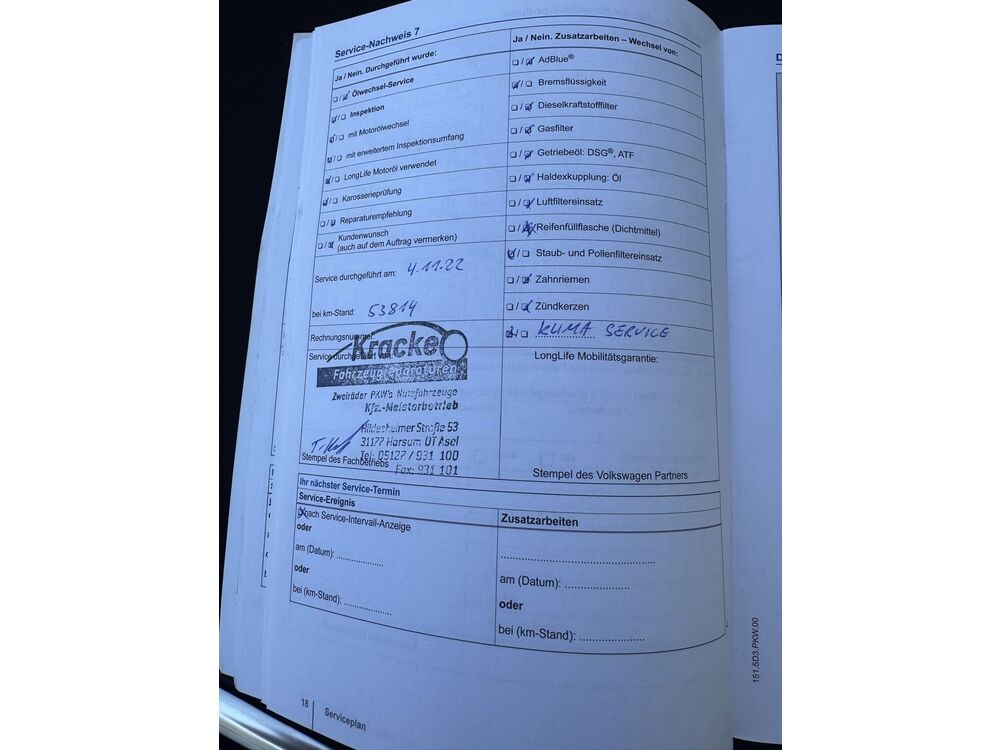 Service-Nachweis 7
Ja / Nein. Durchgeführt wurde:
Ölwechsel-Service
Inspektion
mit Motorölwechsel
mit erweitertem Inspektionsumfang
LongLife Motoröl verwendet
Karosserieprüfung
Reparaturempfehlung
Kundenwunsch
(auch auf dem Auftrag vermerken)
Service durchgeführt am: 4.11.22
bei km-Stand: 53814
Rechnungsnummer:
Service durchgeführt von:
Kracke
Fahrzeugreparaturen
Zweiräder PKW's Nutzfahrzeuge
Kfz.-Meisterbetrieb
Hildesheimer Straße 53
31177 Harsum OT Asel
Tel. 05127 / 931 100
Fax: 931 101
Stempel des Fachbetriebs
Ja / Nein. Zusatzarbeiten – Wechsel von:
AdBlue®
Bremsflüssigkeit
Dieselkraftstofffilter
Gasfilter
Getriebeöl: DSG®, ATF
Haldexkupplung: Öl
Luftfiltereinsatz
Reifenfüllflasche (Dichtmittel)
Staub- und Pollenfiltereinsatz
Zahnriemen
Zündkerzen
KLIMA SERVICE
LongLife Mobilitätsgarantie:
Stempel des Volkswagen Partners
Ihr nächster Service-Termin
Service-Ereignis
nach Service-Intervall-Anzeige
oder
am (Datum): ................
oder
bei (km-Stand): ................
Zusatzarbeiten
am (Datum): ................
oder
bei (km-Stand): ................
18 Serviceplan
151.5D3.PKW.00